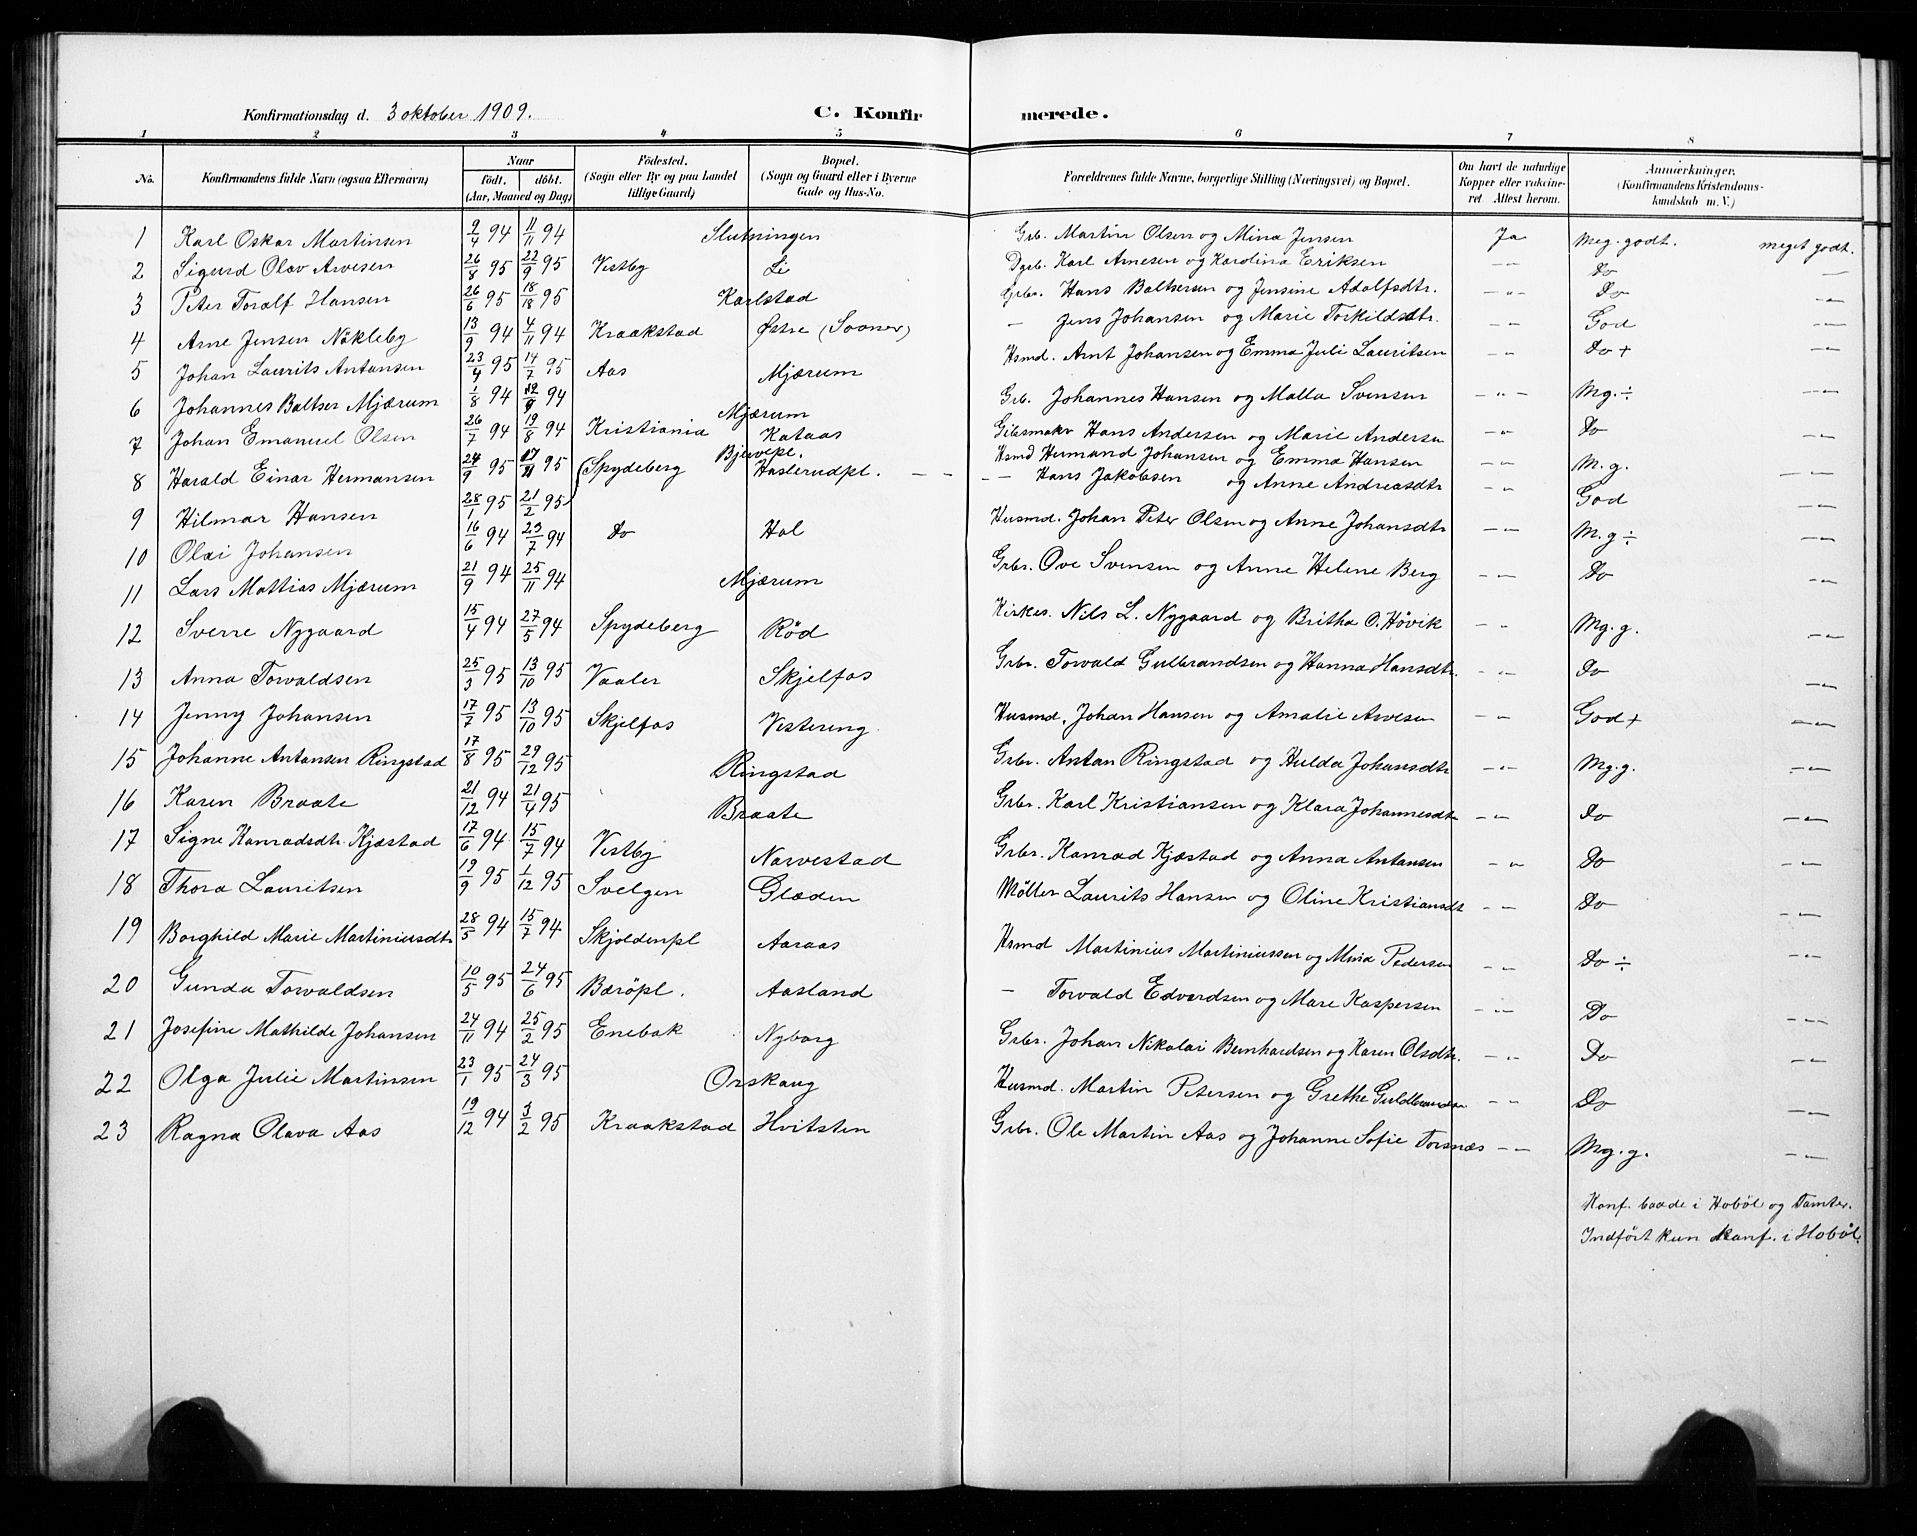 Konfirmationsdag d. 3 oktober 1909. C. Konfirmerede.
1 2 3 4 5 6 7 8
No. Konfirmandens fulde Navn (ogsaa Efternavn) Naar födt. döbt. (Aar, Maaned og Dag) Födested. (Sogn eller By og paa Landet tillige Gaard) Bopæl. (Sogn og Gaard eller i Byerne Gade og Hus-No. Forældrenes fulde Navne, borgerlige Stilling (Næringsvei) og Bopæl. Om havt de naturlige Kopper eller vaccineret Attest herom. Anmærkninger, (Konfirmandens Kristendomskundskab m. V.)
1 Karl Oskar Martinsen 9/4 94 11/11 94 Slutningen Grb. Martin Olsen og Mina Jensen Ja Meg. godt. meget godt.
2 Sigurd Olav Arvesen 26/8 95 22/9 95 Vestby Li Dgrb. Karl Arnesen og Karolina Eriksen -"- Do -"-
3 Peter Toralf Hansen 26/6 95 18/18 95 Karlstad Grbr. Hans Baltsersen og Jensine Adolfsdtr. -"- Do -"-
4 Arne Jensen Nökleby 13/9 94 4/11 94 Kraakstad Østre (Sooner) - Jens Johansen og Marie Torkildsdtr. -"- God -"-
5 Johan Laurits Antansen 23/4 95 14/7 95 Aas Mjærum Hsmd. Arnt Johansen og Emma Juli Lauritsen -"- Do + -"-
6 Johannes Baltser Mjærum 1/8 94 94 Mjærum Grb. Johannes Hansen og Malla Svensen -"- Mg. ÷ -"-
7 Johan Emanuel Olsen 26/7 94 19/8 94 Kristiania Kataas Gibsmakr Hans Andersen og Marie Andersen -"- Do -"-
8 Harald Einar Hermansen 24/9 95 95 (Spydeberg Bjervepl. Haslerudpl. - - Hsmd Hermand Johansen og Emma Hansen -"- M. g. -"-
9 Hilmar Hansen 28/1 95 21/2 95 -- Hans Jakobsen og Anne Andreasdtr -"- God -"-
10 Olai Johansen 16/6 94 23/7 94 Do Hol Husmd. Johan Peter Olsen og Anne Johansdtr -"- M. g ÷ -"-
11 Lars Mattias Mjærum 21/9 94 25/11 94 Mjærum Grbr. Ove Svensen og Anne Helene Berg -"- Do -"-
12 Sverre Nygaard 15/4 94 27/5 94 Spydeberg Rød Kirkes. Nils L. Nygaard og Britha O. Hövik -"- Mg. g. -"-
13 Anna Torvaldsen 25/3 95 13/10 95 Vaaler Skjelfos Grbr. Torvald Gulbrandsen og Hanna Hansdtr. -"- Do -"-
14 Jenny Johansen 17/7 95 13/10 95 Skjelfos Vestereng Husmd, Johan Hansen og Amalie Arvesen -"- God + -"-
15 Johanne Antansen Ringstad 17/8 95 29/12 95 Ringstad Grbr. Antan Ringstad og Hulda Johansdtr -"- Mg. g. -"-
16 Karen Braate 21/12 94 21/4 95 Braate Grbr. Karl Kristiansen og Klara Johannesdtr -"- Do -"-
17 Signe Konradsdtr. Kjæstad 17/6 94 15/7 94 Vestby Narvestad Grbr. Konrad Kjæstad og Anna Antansen -"- Do -"-
18 Thora Lauritsen 19/9 95 1/12 95 Svelgen Glæden Möller Laurits Hansen og Oline Kristiansdt -"- Do -"-
19 Borghild Marie Martiniusdtr 28/5 94 15/7 94 Skjoldenpl Aaraas Hsmd Martinius Martiniussen og Mina Pedersen -"- Do ÷ -"-
20 Gunda Torvaldsen 10/5 95 24/6 95 Bæröpl. Aasland - Torvald Edvardsen og Mare Kaspersen -"- Do -"-
21 Josefine Mathilde Johansen 24/11 94 25/2 95 Enebak Nyborg Grbr. Johan Nikolai Bernhardsen og Karen Olsdtr. -"- Do -"-
22 Olga Julie Martinsen 23/1 95 24/3 95 Orskaug Husmd. Martin Petersen og Grethe Guldbrandsen -"- Do -"-
23 Ragna Olava Aas 19/12 94 3/2 95 Kraakstad Hvitsten Grbr. Ole Martin Aas og Johanne Sofie Torsnæs -"- Mg. g. -"-
Konf. baade i Hobøl og Tomter.
Indført kun konf. i Hobøl.